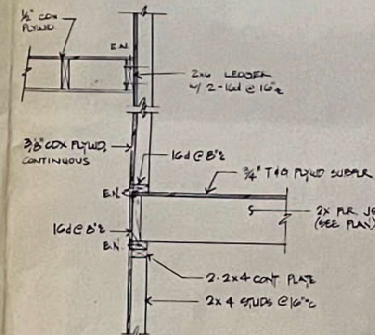 ½" CDX
PLYWD.
E.N.
2x6 LEDGER
W/ 2-16d @ 16"℄
3/8" CDX PLYWD,
CONTINUOUS
16d @ 8"℄
3/4" T&G PLYWD SUBFLR
E.N.
2X FLR. JS
(SEE PLAN)
16d @ 8"℄
B.N.
2-2x4 CONT. PLATE
2x4 STUDS @ 16"℄